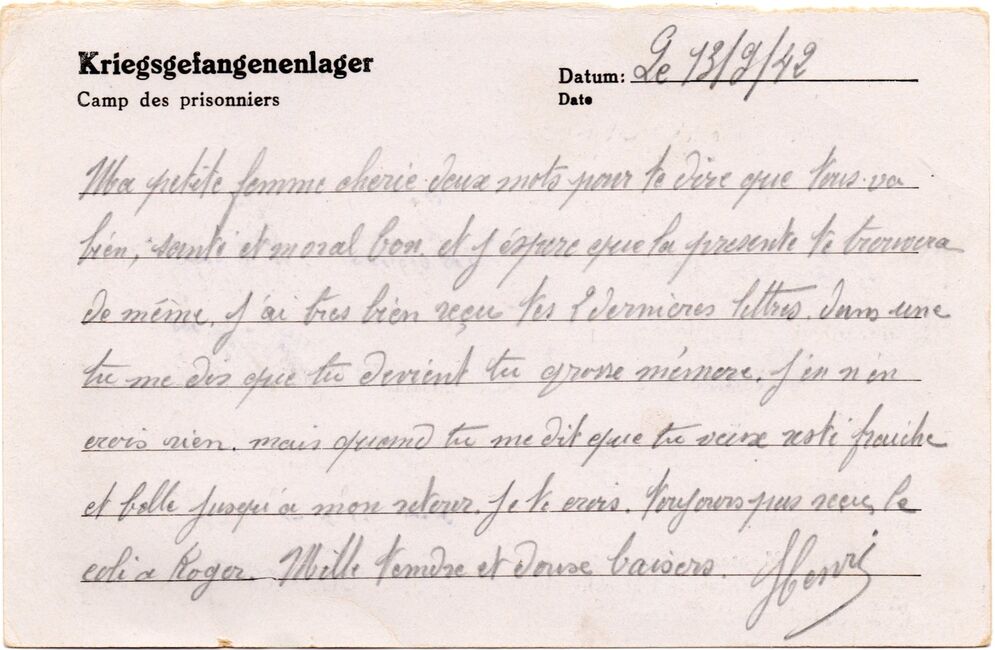 Kriegsgefangenenlager
Camp des prisonniers
Datum: Le 13/9/42
Date
Ma petite femme cherie deux mots pour te dire que tous va
bien, santé et moral bon. et j'éspere que la presente te trouvera
de même. J'ai tres bien reçu tes 2 dernieres lettres. dans une
tu me dis que tu devient tu grosse mémere. J'en n'en
crois rien. mais quand tu me dit que tu veux resté fraiche
et belle jusqu'a mon retour. je te crois. toujours pas reçu le
coli a Roger. Mille tendre et douse baisers. Henri